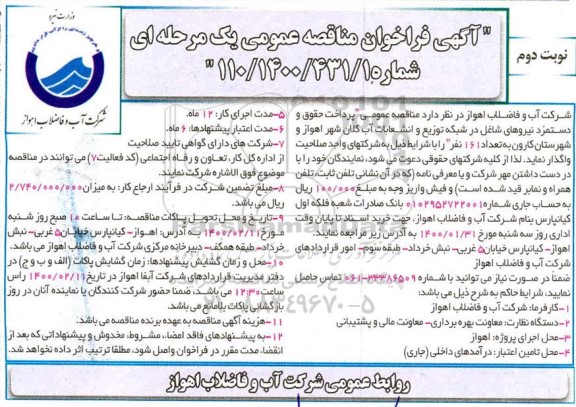 " آگهی فراخوان مناقصه عمومی یک مرحله ای
شماره ۱۱۰/۱۴۰۰/۴۳۱/۱ "
نوبت دوم
وزارت نیرو
شرکت آب و فاضلاب اهواز
شرکت آب و فاضلاب اهواز در نظر دارد مناقصه عمومی "پرداخت حقوق و
دستمزد نیروهای شاغل در شبکه توزیع و انشعابات آب کلان شهر اهواز و
شهرستان کارون به تعداد ۱۶۱ نفر" را با شرایط ذیل به شرکتهای واجد صلاحیت
واگذار نماید. لذا از کلیه شرکتهای حقوقی دعوت می شود، نمایندگان خود را با
در دست داشتن مهر شرکت و یا معرفی نامه (که در آن نشانی تلفن ثابت، تلفن
همراه و نمابر قید شده است) و فیش واریز وجه به مبلغ ۱۰۰/۰۰۰ ریال
به حساب جاری شماره ۰۱۰۲۹۵۲۷۲۲۰۰۱ بانک صادرات شعبه فلکه اول
کیانپارس بنام شرکت آب و فاضلاب اهواز، جهت خرید اسناد تا پایان وقت
اداری روز سه شنبه مورخ ۱۴۰۰/۰۱/۳۱ به آدرس زیر مراجعه نمایند:
اهواز- کیانپارس خیابان ۵ غربی- نبش خرداد- طبقه سوم- امور قراردادهای
شرکت آب و فاضلاب اهواز
ضمناً در صورت نیاز می توانید با شماره ۳۳۳۸۶۵۰۹-۰۶۱ تماس حاصل
نمایید. شرایط حاکم به شرح ذیل می باشد:
۱-کارفرما: شرکت آب و فاضلاب اهواز
۲-دستگاه نظارت: معاونت بهره برداری- معاونت مالی و پشتیبانی
۳-محل اجرای پروژه: اهواز
۴-محل تامین اعتبار: درآمدهای داخلی (جاری)
۵-مدت اجرای کار: ۱۲ ماه.
۶-مدت اعتبار پیشنهادها: ۶ ماه.
۷-شرکت های دارای گواهی تایید صلاحیت
از اداره کل کار، تعاون و رفاه اجتماعی (کد فعالیت ۷) می توانند در مناقصه
موضوع فوق الاشاره شرکت نمایند.
۸-مبلغ تضمین شرکت در فرآیند ارجاع کار: به میزان ۲/۷۴۰/۰۰۰/۰۰۰
ریال می باشد.
۹-تاریخ و محل تحویل پاکات مناقصه: تا ساعت ۱۰ صبح روز شنبه
مورخ ۱۴۰۰/۰۲/۱۱ به آدرس: اهواز- کیانپارس خیابان ۵ غربی- نبش
خرداد- طبقه همکف- دبیرخانه مرکزی شرکت آب و فاضلاب اهواز می باشد.
۱۰-محل و زمان گشایش پیشنهادها: زمان گشایش پاکات (الف و ب و ج) در
دفتر مدیریت قراردادهای شرکت آبفا اهواز در تاریخ ۱۴۰۰/۰۲/۱۱ راس
ساعت ۱۲:۳۰ می باشد، ضمناً حضور شرکت کنندگان یا نماینده آنان در روز
بازگشایی پاکات بلامانع می باشد.
۱۱-هزینه آگهی مناقصه به عهده برنده مناقصه می باشد.
۱۲-به پیشنهادهای فاقد امضا، مشروط، مخدوش و پیشنهاداتی که بعد از
انقضا، مدت مقرر در فراخوان واصل شود، مطلقا ترتیب اثر داده نخواهد شد.
روابط عمومی شرکت آب و فاضلاب اهواز